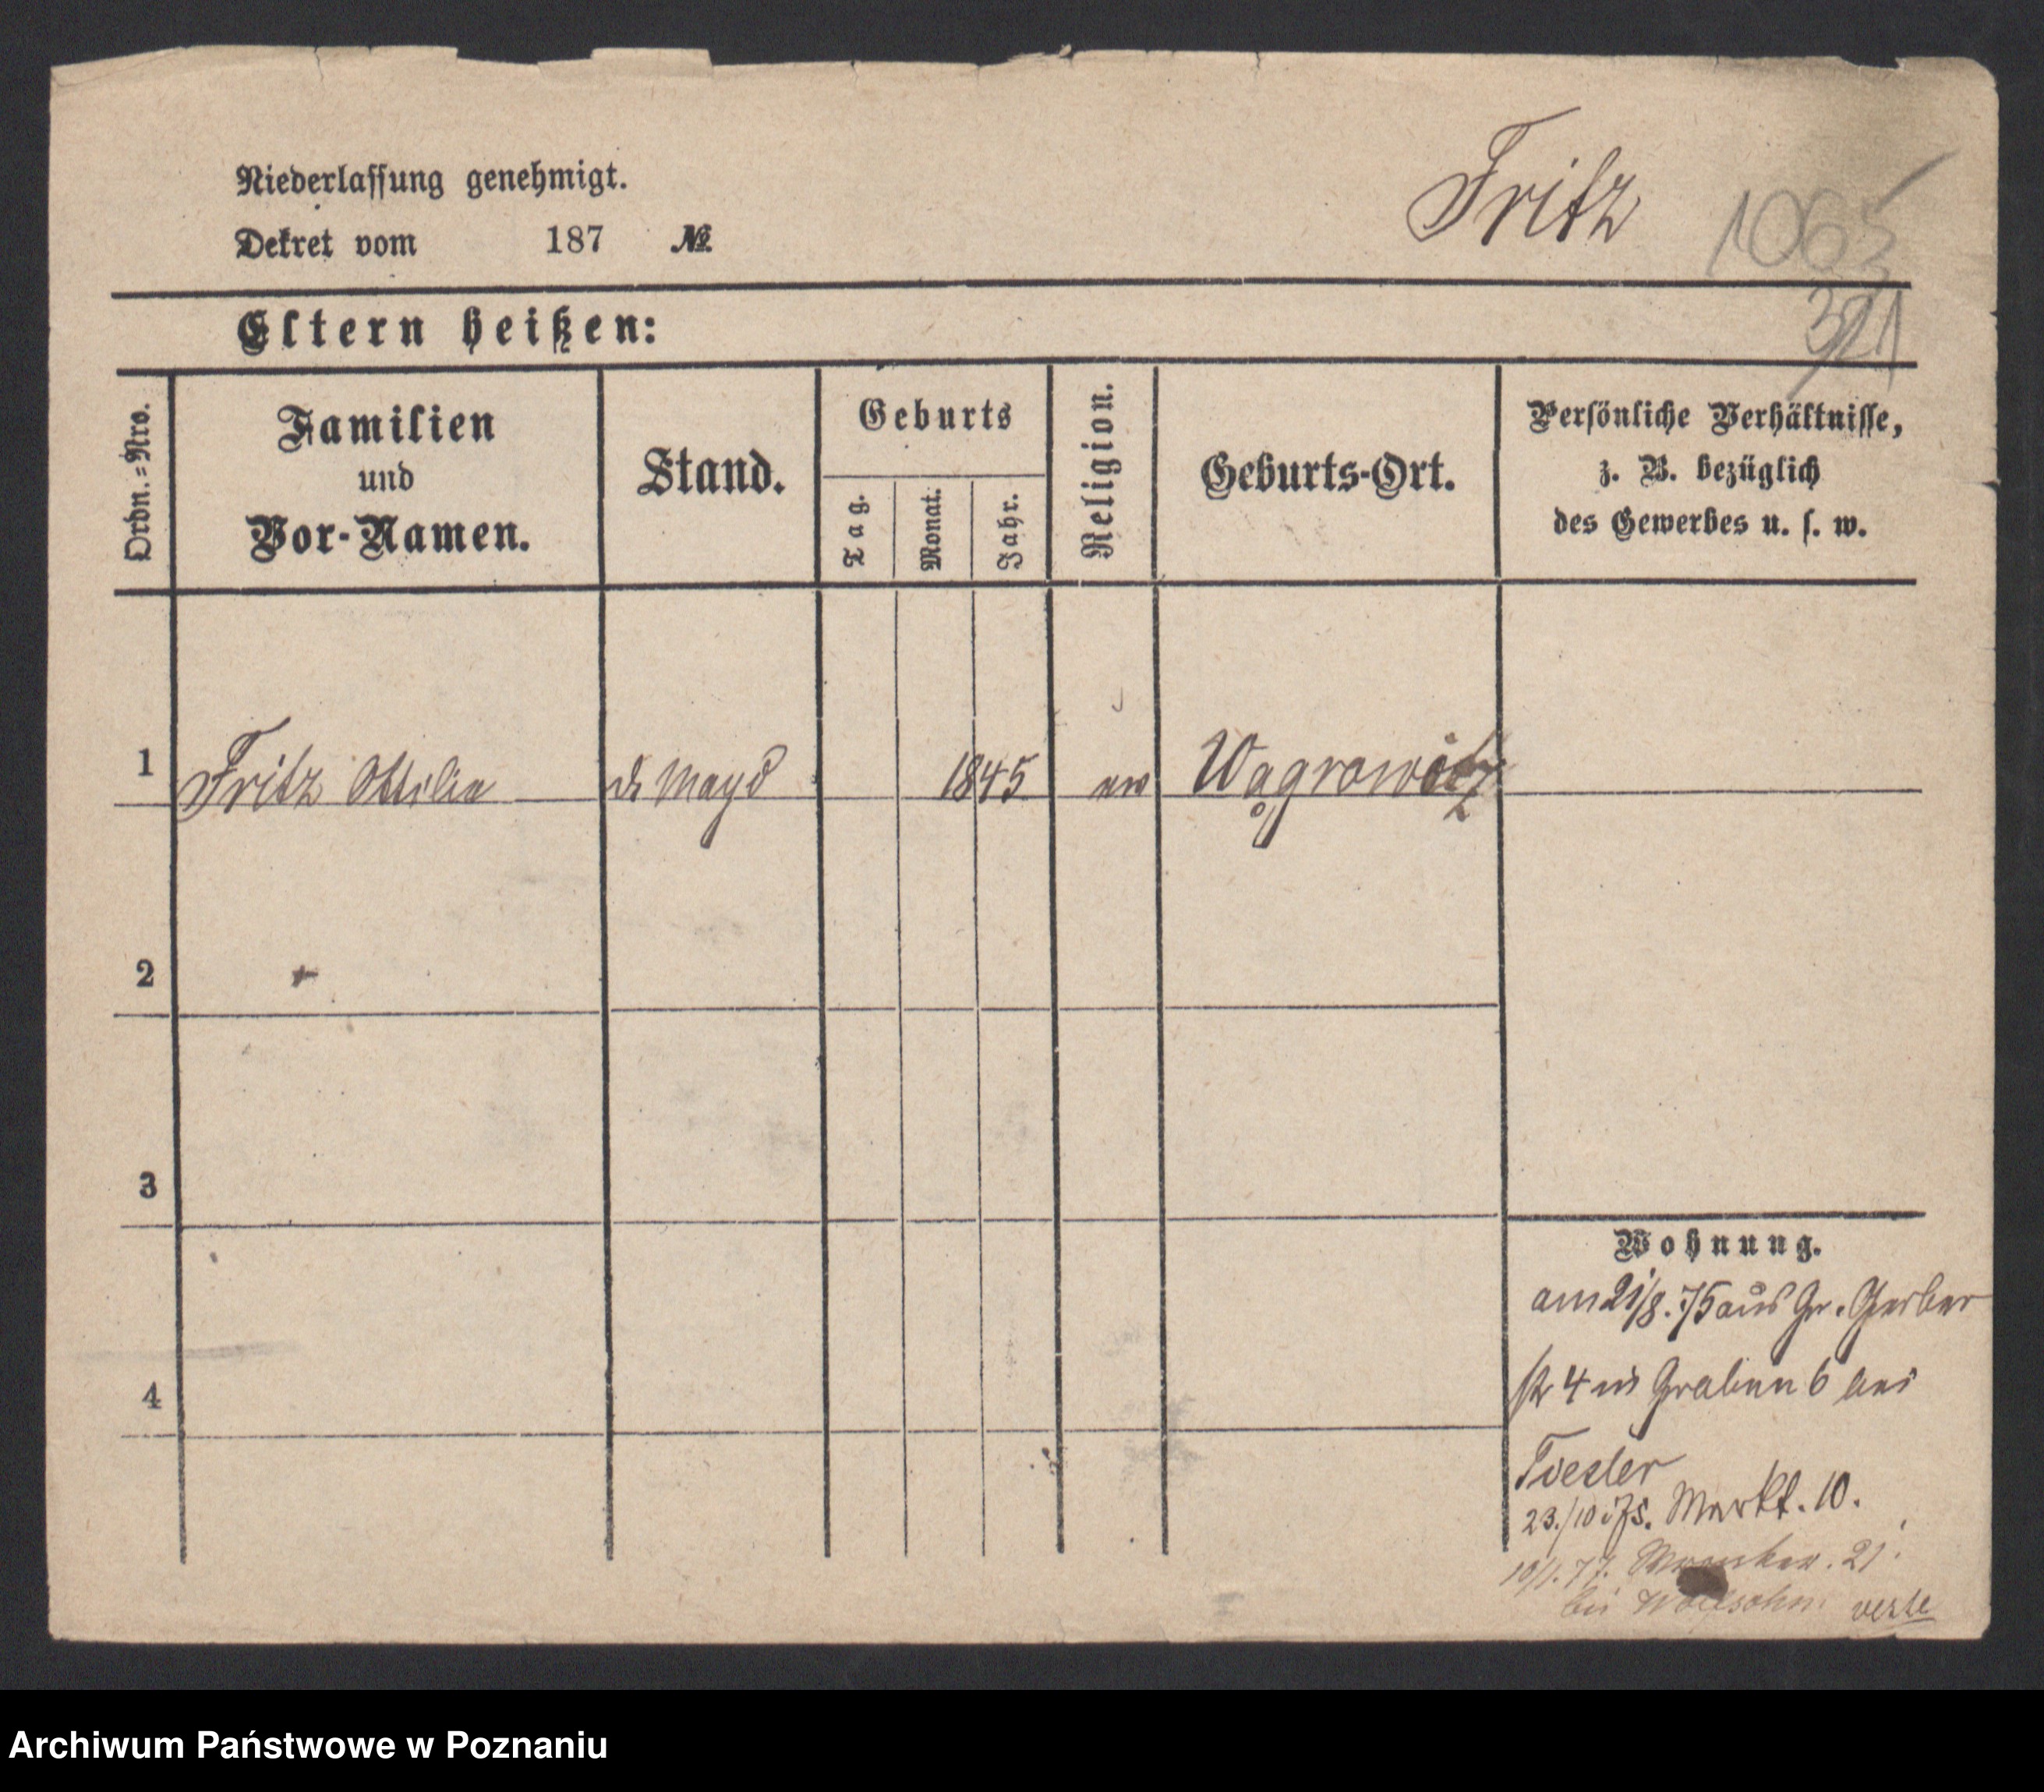 Niederlassung genehmigt.
Fritz
1065
Dekret vom 187 №
Eltern heißen:
321
Ordn.=Nro.
Familien
und
Vor-Namen.
Stand.
Geburts
Tag.
Monat.
Jahr.
Religion.
Geburts-Ort.
Persönliche Verhältnisse,
z. B. bezüglich
des Gewerbes u. s. w.
1 Fritz Ottilie d. Magd 1845 ev Wągrowitz
2
3
4
Wohnung.
am 21/8.75 aus Gr. Gerber
str 4 in Graben 6 bei
23./10 75. Markt. 10.
10/1.77. 21.
bei Wolfsohn. verte
Archiwum Państwowe w Poznaniu